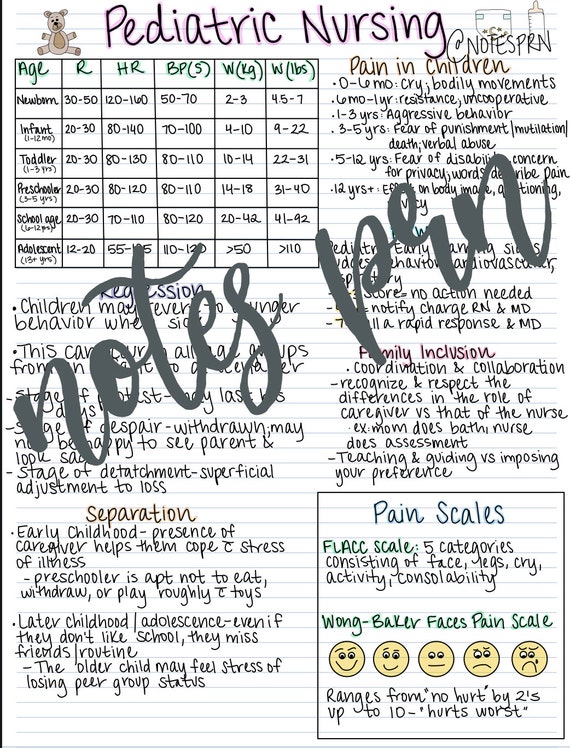 Pediatric Nursing
@NOTESPRN
Age R HR BP(S) W(kg) W(lbs)
Newborn 30-50 120-160 50-70 2-3 4.5-7
Infant (1-12mo) 20-30 80-140 70-100 4-10 9-22
Toddler (1-3 yrs) 20-30 80-130 80-110 10-14 22-31
Preschooler (3-5 yrs) 20-30 80-120 80-110 14-18 31-40
School age (6-12yrs) 20-30 70-110 80-120 20-42 41-92
Adolescent (13+ yrs) 12-20 55- 110-120 >50 >110
Pain in Children
·0-6 mo: cry; bodily movements
·6mo-1yr: resistance, uncooperative
·1-3 yrs: Aggressive behavior
·3-5 yrs: Fear of punishment/mutilation/
death; verbal abuse
·5-12 yrs: Fear of disability, concern
for privacy; words describe pain
·12 yrs+: Effect on body image, questioning,
Pediatric Early Warning
score= no action needed
notify charge RN & MD
a rapid response & MD
Family Inclusion
·Coordination & collaboration
-recognize & respect the
differences in the role of
caregiver vs that of the nurse
·ex: mom does bath, nurse
does assessment
-Teaching & guiding vs imposing
your preference
Regression
·Children may revert to younger
behavior when sick
·This can occur in all age groups
from an infant to a teenager
-stage of protest-may last hrs
days
-stage of despair-withdrawn; may
not be happy to see parent &
look sad
-stage of detatchment-superficial
adjustment to loss
Separation
·Early Childhood- presence of
caregiver helps them cope c̄ stress
of illness
-preschooler is apt not to eat,
withdraw, or play "roughly c̄ toys"
·Later childhood/adolescence-even if
they don't like school, they miss
friends/routine
-The older child may feel stress of
losing peer group status
Pain Scales
FLACC Scale: 5 categories
consisting of face, legs, cry,
activity, consolability
Wong-Baker Faces Pain Scale
Ranges from "no hurt" by 2's
up to 10-"hurts worst"
notes prn